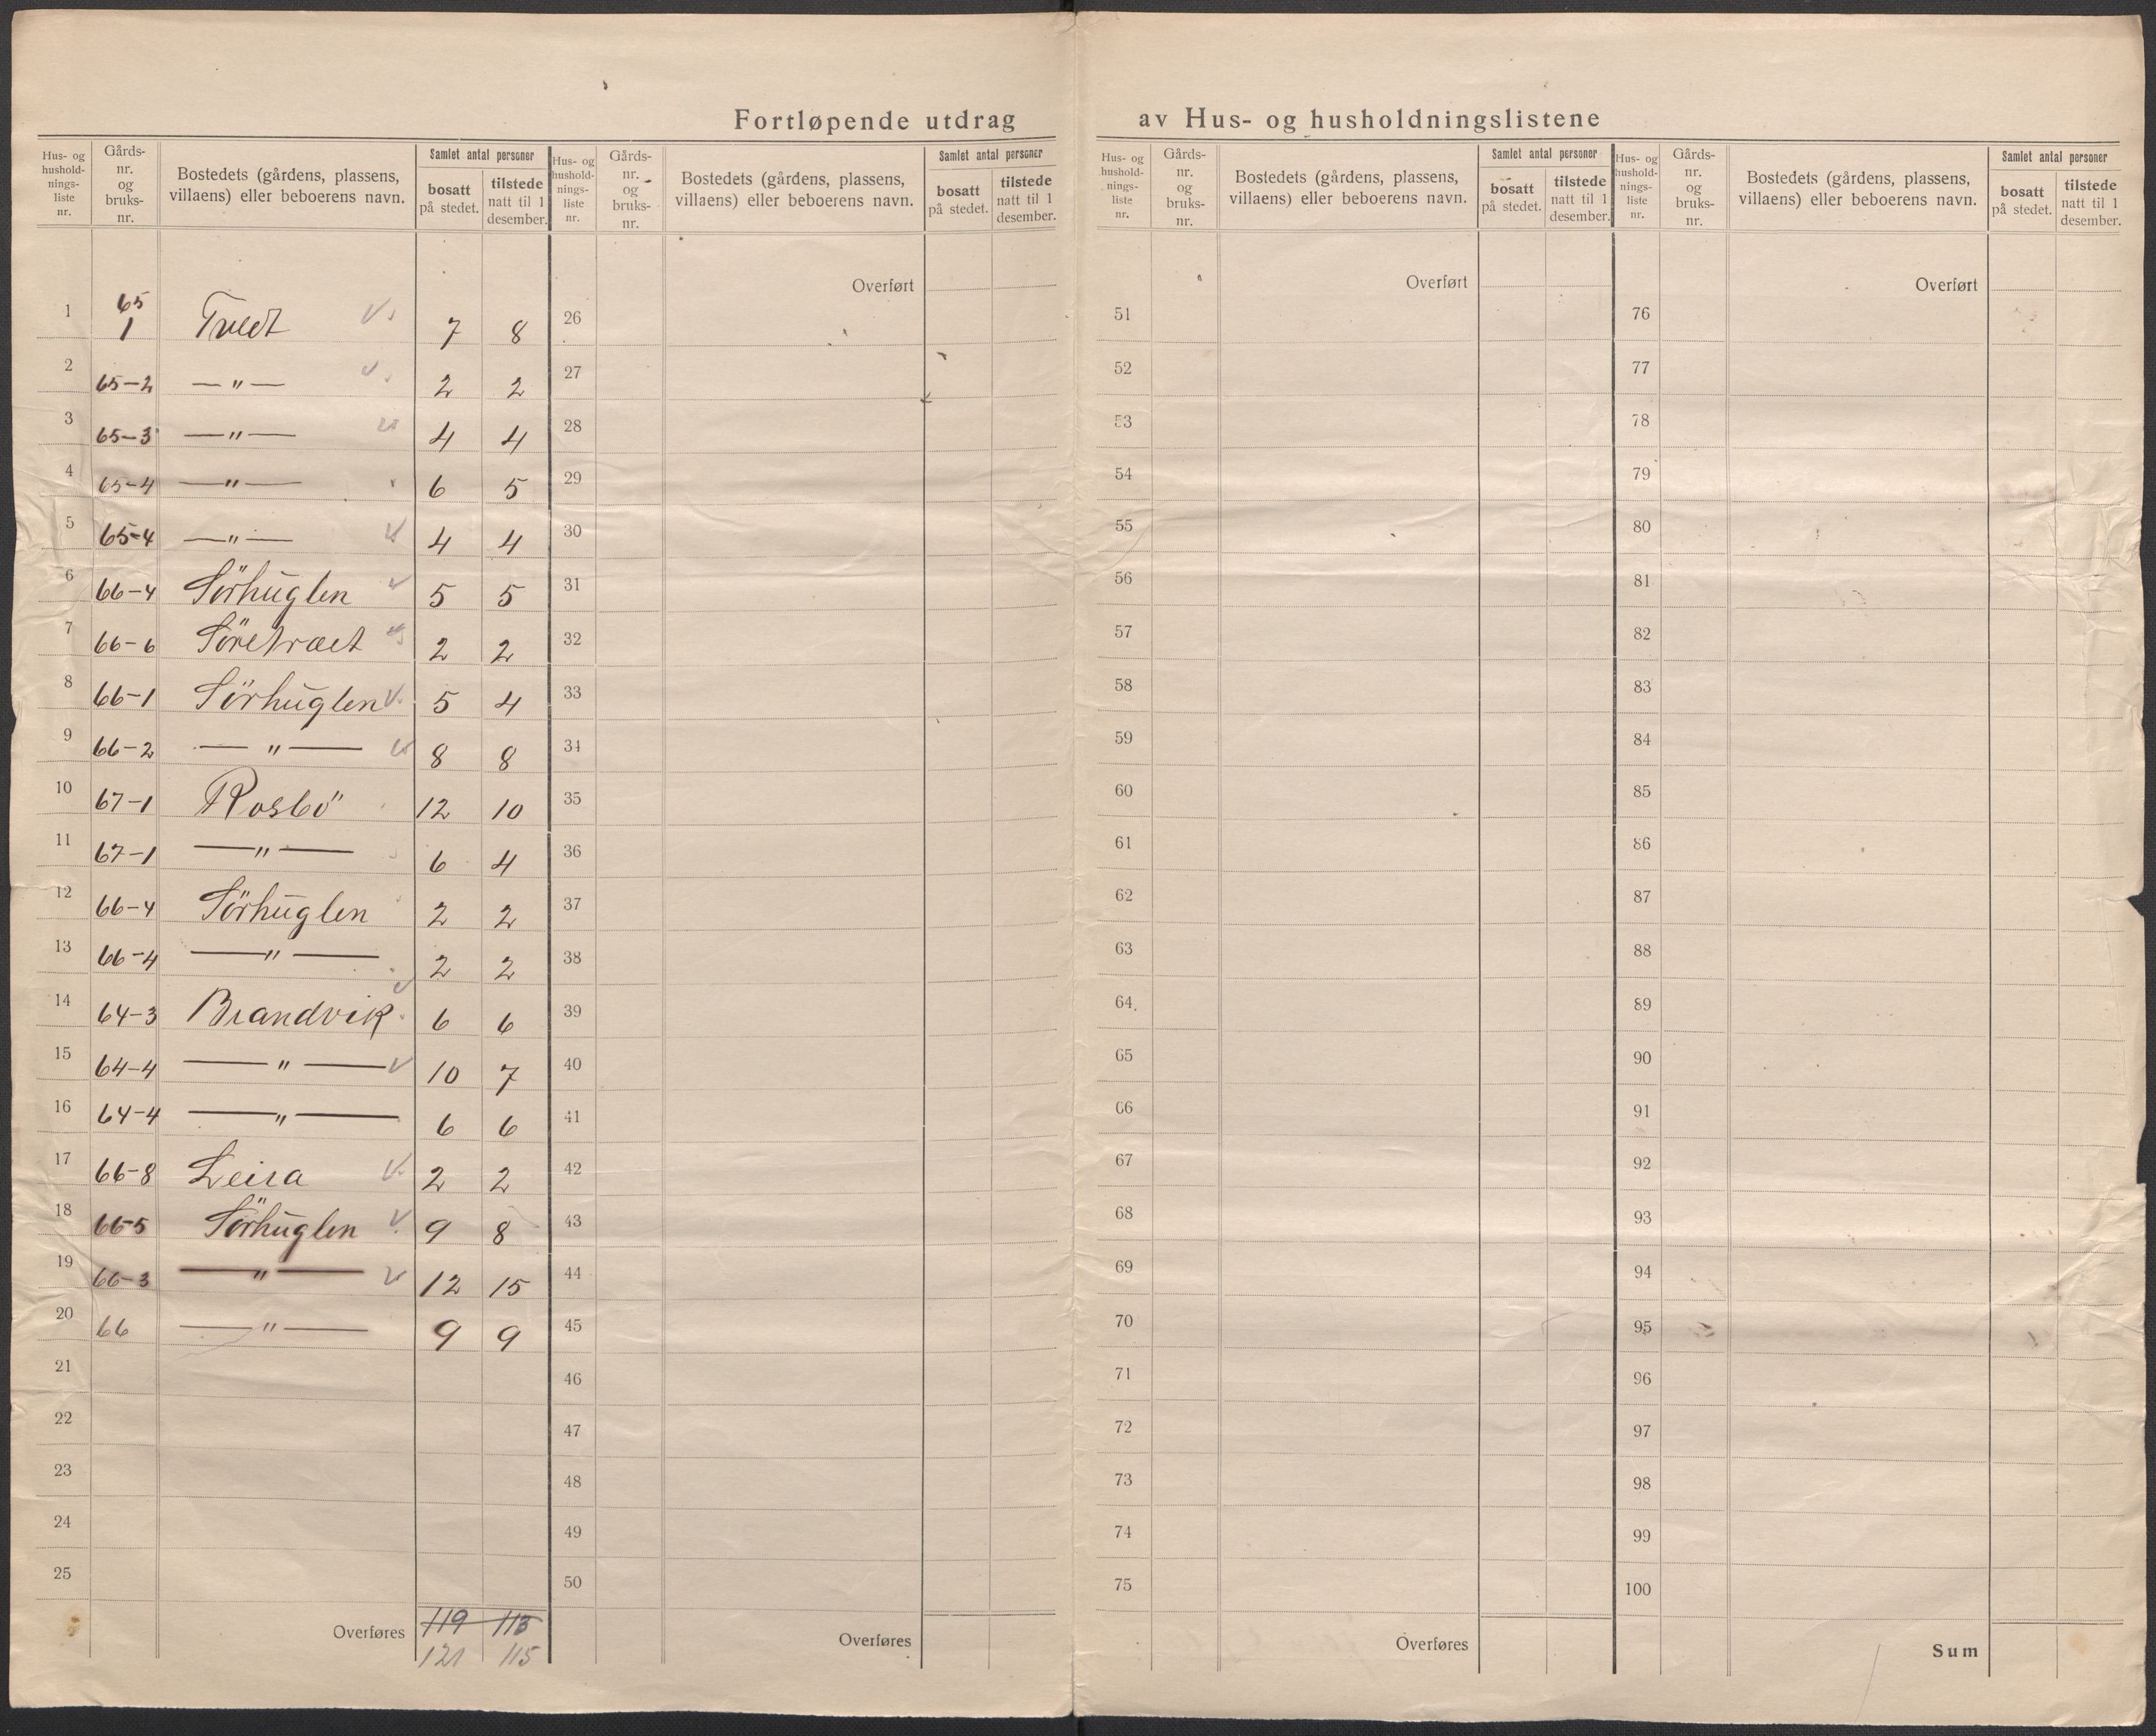 Fortløpende utdrag av Hus- og husholdningslistene
Hus- og hushold-nings-liste nr. | Gårds-nr. og bruks-nr. | Bostedets (gårdens, plassens, villaens) eller beboerens navn. | Samlet antal personer | bosatt på stedet. | tilstede natt til 1 desember.
1 | 65 1 | Tvedt | 7 | 8
2 | 65-2 | —"— | 2 | 2
3 | 65-3 | —"— | 4 | 4
4 | 65-4 | —"— | 6 | 5
5 | 65-4 | —"— | 4 | 4
6 | 66-4 | Sörhuglen | 5 | 5
7 | 66-6 | Söretræet | 2 | 2
8 | 66-1 | Sörhuglen | 5 | 4
9 | 66-2 | —"— | 8 | 8
10 | 67-1 | Rosbö | 12 | 10
11 | 67-1 | —"— | 6 | 4
12 | 66-4 | Sörhuglen | 2 | 2
13 | 66-4 | —"— | 2 | 2
14 | 64-3 | Brandvik | 6 | 6
15 | 64-4 | —"— | 10 | 7
16 | 64-4 | —"— | 6 | 6
17 | 66-8 | Leira | 2 | 2
18 | 66-5 | Sörhuglen | 9 | 8
19 | 66-3 | —"— | 12 | 15
20 | 66 | —"— | 9 | 9
21
22
23
24
25
Overføres | 119 | 113
121 | 115
Hus- og hushold-nings-liste nr. | Gårds-nr. og bruks-nr. | Bostedets (gårdens, plassens, villaens) eller beboerens navn. | Samlet antal personer | bosatt på stedet. | tilstede natt til 1 desember.
Overført
26
27
28
29
30
31
32
33
34
35
36
37
38
39
40
41
42
43
44
45
46
47
48
49
50
Overføres
Hus- og hushold-nings-liste nr. | Gårds-nr. og bruks-nr. | Bostedets (gårdens, plassens, villaens) eller beboerens navn. | Samlet antal personer | bosatt på stedet. | tilstede natt til 1 desember.
Overført
51
52
53
54
55
56
57
58
59
60
61
62
63
64
65
66
67
68
69
70
71
72
73
74
75
Overføres
Hus- og hushold-nings-liste nr. | Gårds-nr. og bruks-nr. | Bostedets (gårdens, plassens, villaens) eller beboerens navn. | Samlet antal personer | bosatt på stedet. | tilstede natt til 1 desember.
Overført
76
77
78
79
80
81
82
83
84
85
86
87
88
89
90
91
92
93
94
95
96
97
98
99
100
Sum